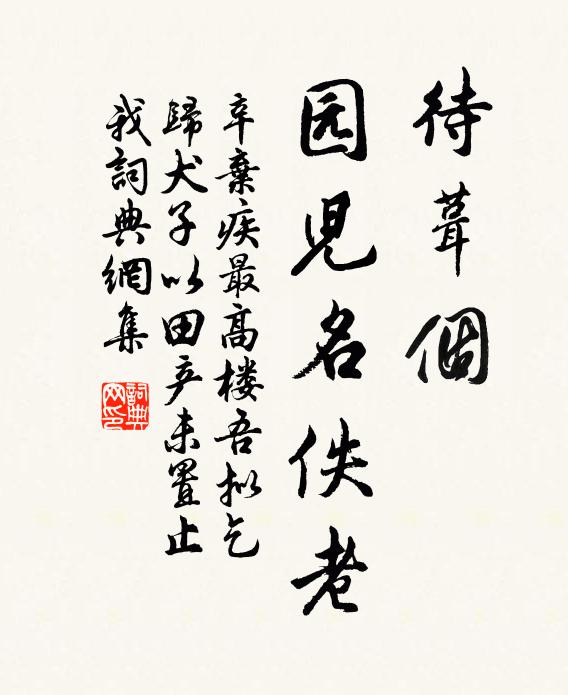 待葺個
园児名佚老
辛棄疾最高楼吾拟乞
歸犬子以田产未置止
我詞典網集
詞典网印